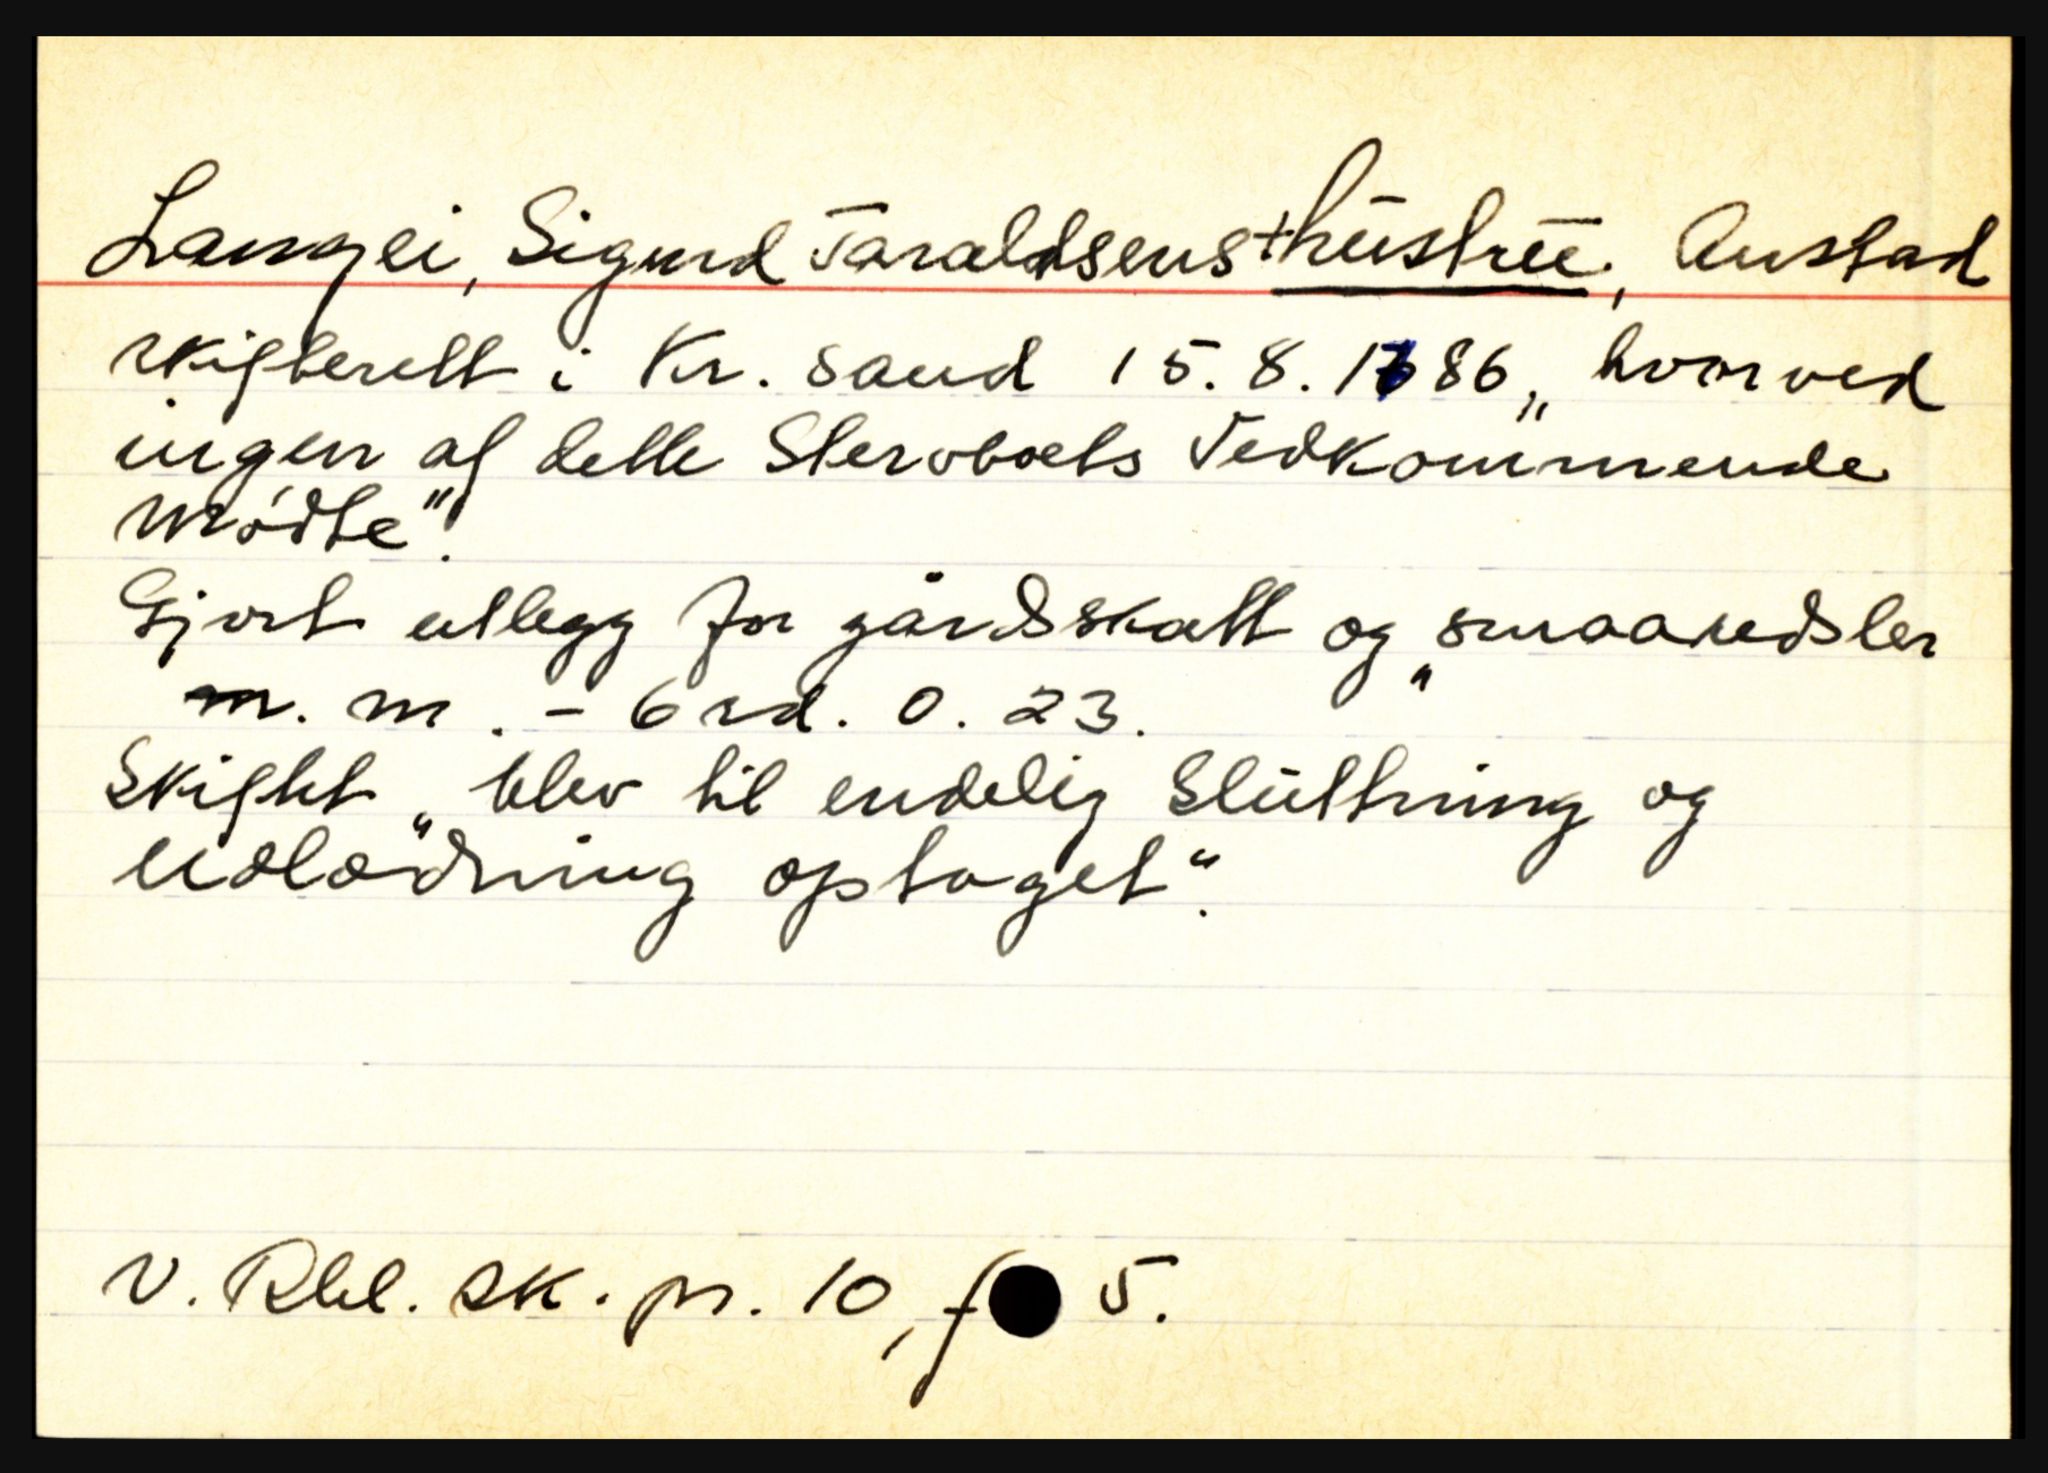 Langei, Sigurd Taraldsens + hūstrūe, Austad
skifterett i Kr. sand 15.8.1686, „hvorved
ingen af dette Stervboets Vedkommende
mødte".
Gjort utlegg for gårdskatt og „smaaredsler
m. m. - 6 rd. 0. 23.
Skiftet „blev til endelig Slūttning og
Udlodning optaget".
V. Rbl. sk. pr. 10, f 5.